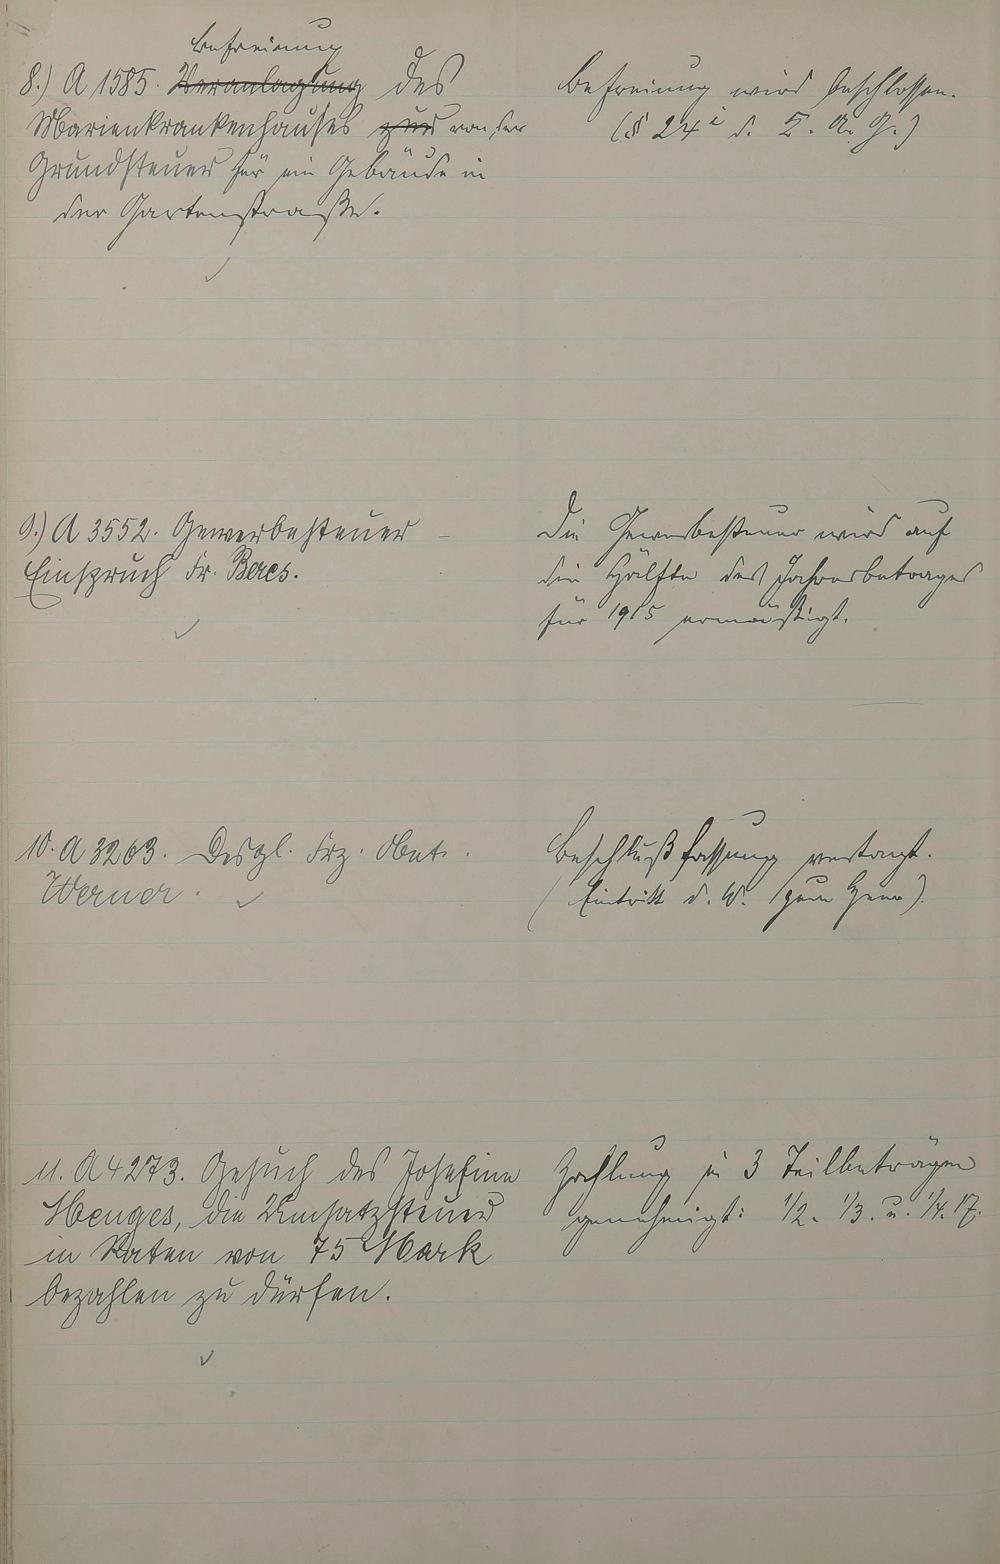 Befreiung
8.) A 1585. Veranlagung des
Marienkrankenhauses zur von der
Grundsteuer für ein Gebäude in
der Gartenstraße.
Befreiung wird beschlossen.
(§ 24 i d. K. A. G.)
9.) A 3552. Gewerbesteuer -
Einspruch Fr. Beres.
Die Gewerbesteuer wird auf
die Hälfte des Jahresbetrages
für 1915 ermäßigt.
10. A 3263. Desgl. Frz.
Werner.
Beschlußfassung vertagt.
(Eintritt d. W. zum Heer)
11. A 4273. Gesuch des Josefine
Henges, die Umsatzsteuer
in Raten von 75 Mark
bezahlen zu dürfen.
Zahlung in 3 Teilbeträgen
genehmigt: 1/2. 1/3. u. 1/4. 17.